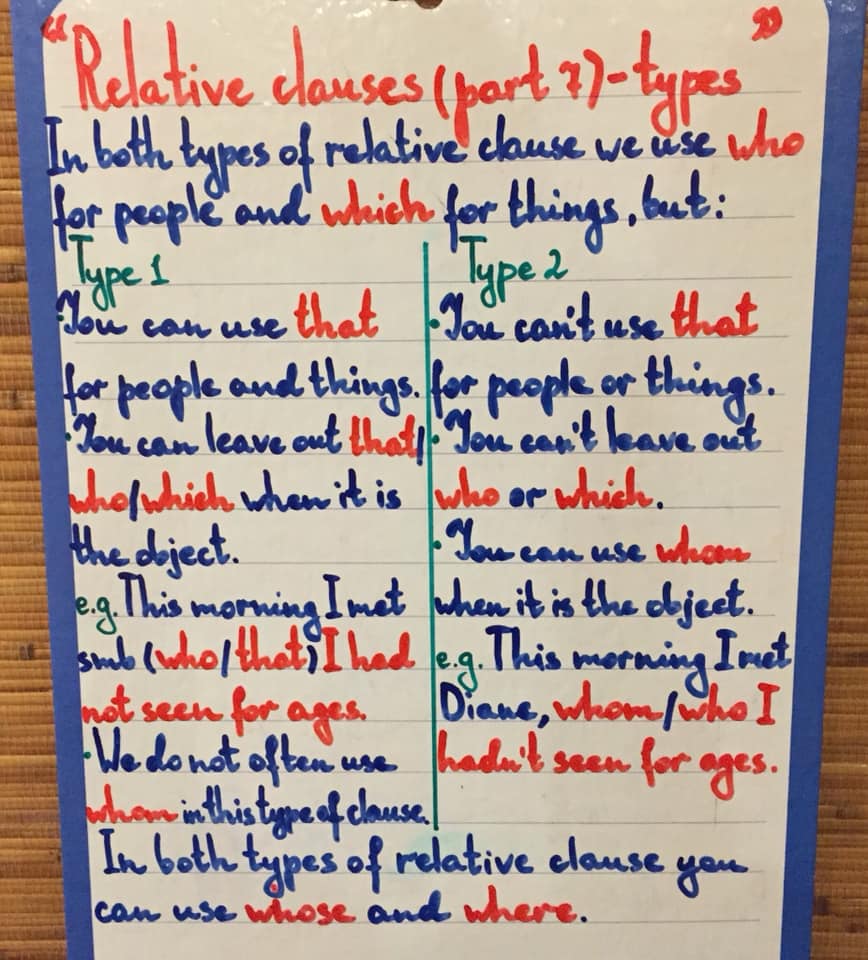 "Relative clauses (part 7)-types"
In both types of relative clause we use who
for people and which for things, but:
Type 1
You can use that
for people and things.
· You can leave out that/
who/which when it is
the object.
e.g. This morning I met
smb (who/that) I had
not seen for ages.
· We do not often use
whom in this type of clause.
Type 2
· You can't use that
for people or things.
· You can't leave out
who or which.
· You can use whom
when it is the object.
e.g. This morning I met
Diane, whom/who I
hadn't seen for ages.
In both types of relative clause you
can use whose and where.